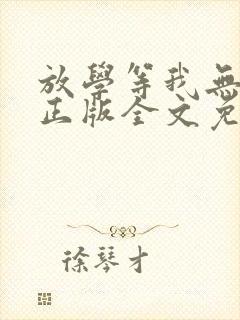 放學等我無
正版全文免
徐琴才